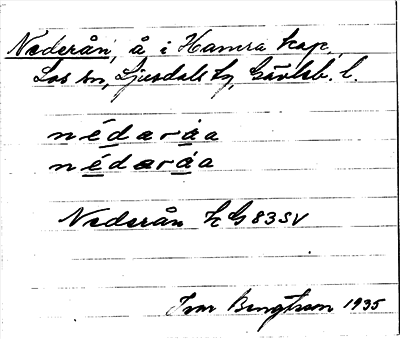 Nederån, å i Hamra kap.,
Los sn, Ljusdals tg, Gävleb. l.
nédaråa
nédaråa
Nederån k G 83 SV
Ivar Bengtsson 1935